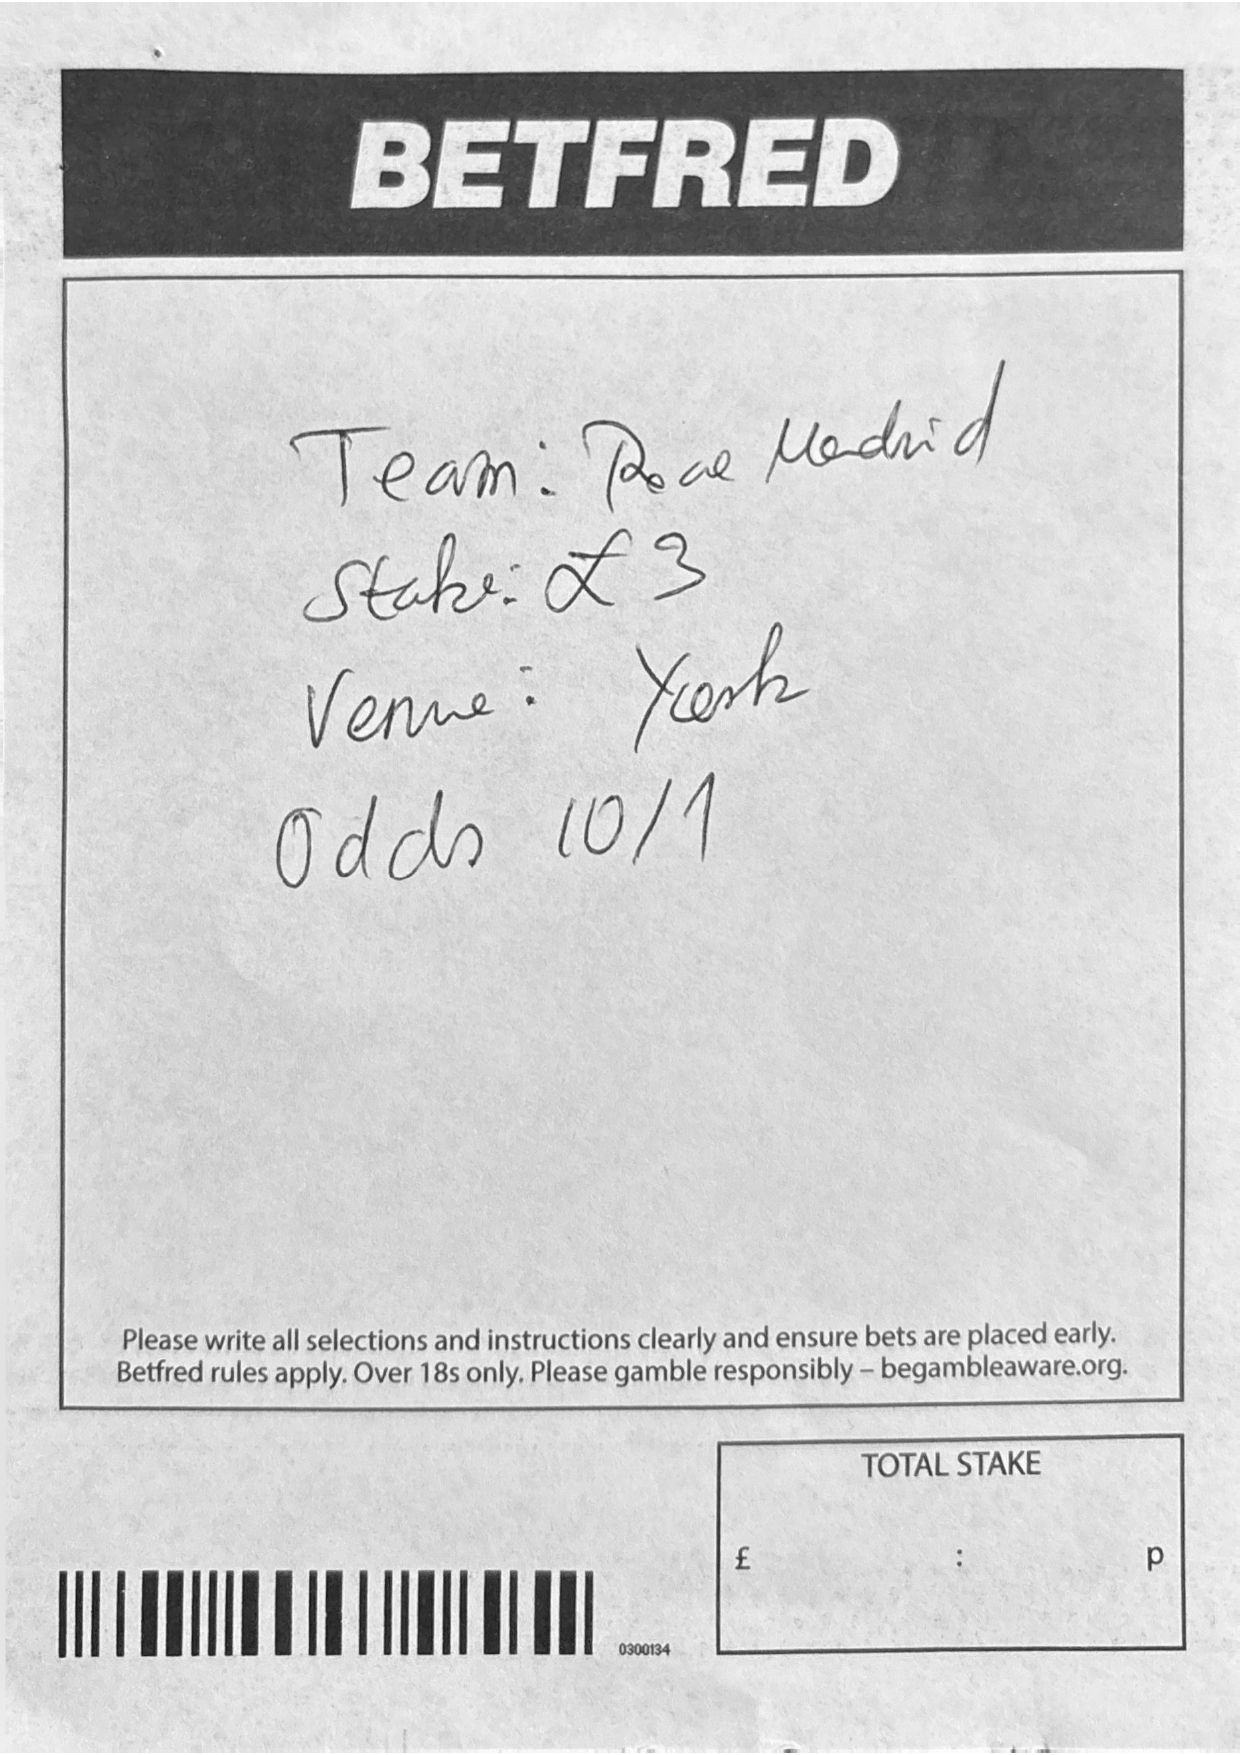 BETFRED
Team: Real Madrid
Stake: £3
Venue: York
Odds 10/1
Please write all selections and instructions clearly and ensure bets are placed early.
Betfred rules apply. Over 18s only. Please gamble responsibly – begambleaware.org.
TOTAL STAKE
£ : p
0300134